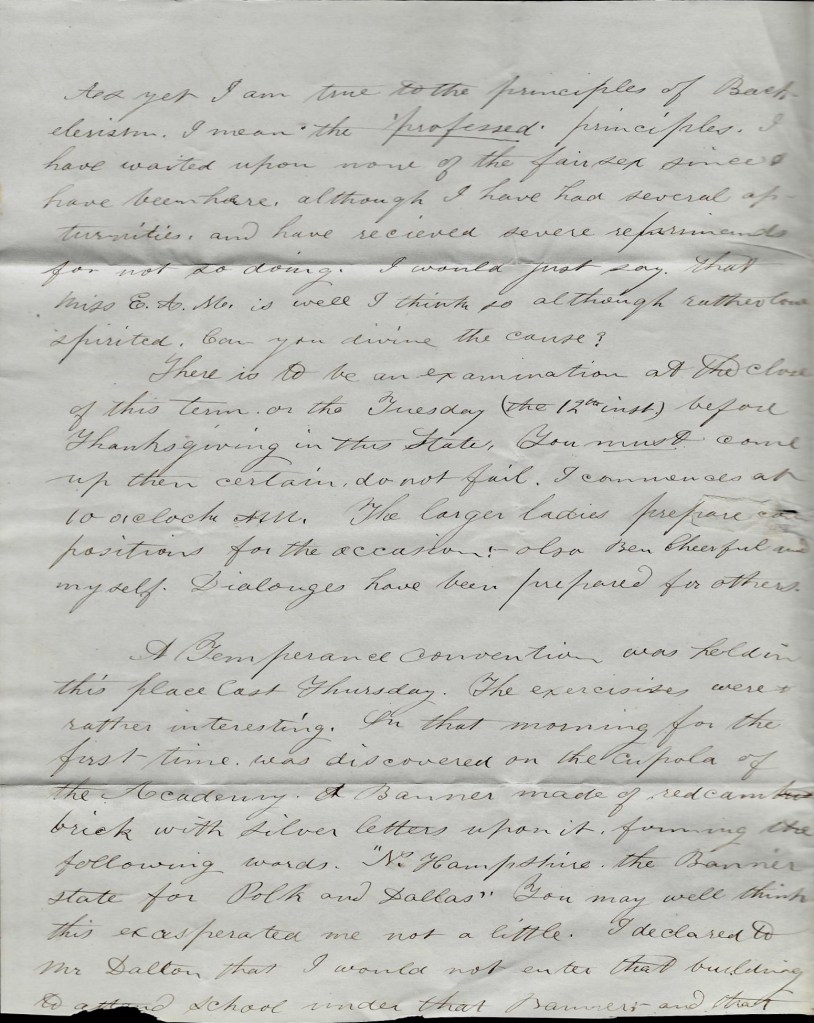 As yet I am true to the principles of Bach-
elerism. I mean the "professed" principles. I
have waited upon none of the fair sex since I
have been here, although I have had several op-
turnities, and have recieved severe reprimands
for not so doing. I would just say, that
Miss E. A. M. is well I think so although rather low
spirited. Can you divine the cause?
There is to be an examination at the close
of this term. or the Tuesday (the 12th inst.) before
Thanksgiving in this State. You must come
up then certain, do not fail. I commences at
10 oclock AM. The larger ladies prepare com
positions for the occasion:- also Ben Cheerful and
myself. Dialonges have been prepared for others.
A Temperance convention was held in
this place last Thursday. The exercisises were
rather interesting. On that morning for the
first time was discovered on the cupola of
the Academy. A Banner made of red cam
brick with silver letters upon it, forming the
following words. "N. Hampshire the Banner
state for Polk and Dallas" You may well think
this exasperated me not a little. I declared to
Mr Dalton that I would not enter that building
to attend school under that Banner:- and that